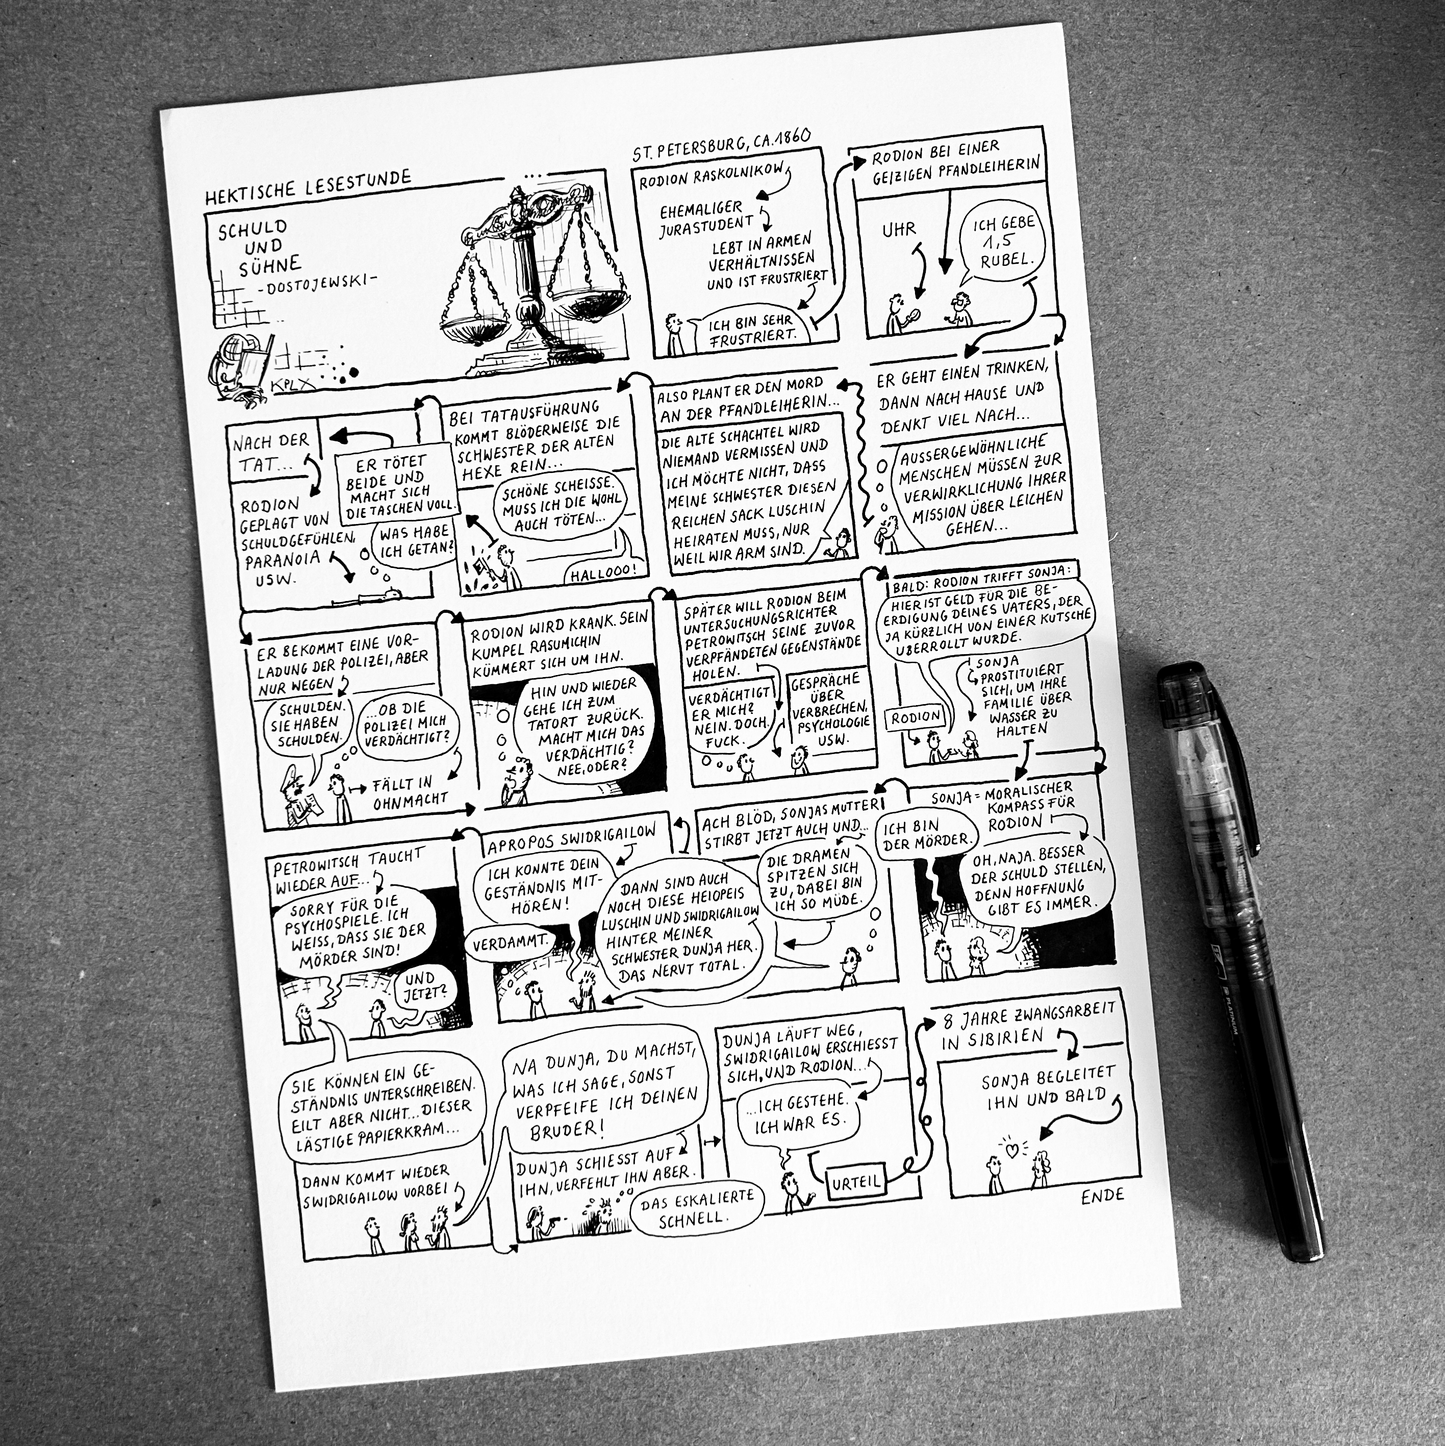 HEKTISCHE LESESTUNDE
...
SCHULD
UND
SÜHNE
-DOSTOJEWSKI-
KPLX
ST. PETERSBURG, CA. 1860
RODION RASKOLNIKOW
EHEMALIGER
JURASTUDENT
LEBT IN ARMEN
VERHÄLTNISSEN
UND IST FRUSTRIERT
ICH BIN SEHR
FRUSTRIERT.
RODION BEI EINER
GEIZIGEN PFANDLEIHERIN
UHR
ICH GEBE
1,5
RUBEL.
ER GEHT EINEN TRINKEN,
DANN NACH HAUSE UND
DENKT VIEL NACH...
AUSSERGEWÖHNLICHE
MENSCHEN MÜSSEN ZUR
VERWIRKLICHUNG IHRER
MISSION ÜBER LEICHEN
GEHEN...
ALSO PLANT ER DEN MORD
AN DER PFANDLEIHERIN...
DIE ALTE SCHACHTEL WIRD
NIEMAND VERMISSEN UND
ICH MÖCHTE NICHT, DASS
MEINE SCHWESTER DIESEN
REICHEN SACK LUSCHIN
HEIRATEN MUSS, NUR
WEIL WIR ARM SIND.
BEI TATAUSFÜHRUNG
KOMMT BLÖDERWEISE DIE
SCHWESTER DER ALTEN
HEXE REIN...
SCHÖNE SCHEISSE.
MUSS ICH DIE WOHL
AUCH TÖTEN...
HALLOOO!
ER TÖTET
BEIDE UND
MACHT SICH
DIE TASCHEN VOLL.
NACH DER
TAT...
RODION
GEPLAGT VON
SCHULDGEFÜHLEN,
PARANOIA
USW.
WAS HABE
ICH GETAN?
ER BEKOMMT EINE VOR-
LADUNG DER POLIZEI, ABER
NUR WEGEN
SCHULDEN.
SIE HABEN
SCHULDEN.
...OB DIE
POLIZEI MICH
VERDÄCHTIGT?
FÄLLT IN
OHNMACHT
RODION WIRD KRANK. SEIN
KUMPEL RASUMICHIN
KÜMMERT SICH UM IHN.
HIN UND WIEDER
GEHE ICH ZUM
TATORT ZURÜCK.
MACHT MICH DAS
VERDÄCHTIG?
NEE, ODER?
SPÄTER WILL RODION BEIM
UNTERSUCHUNGSRICHTER
PETROWITSCH SEINE ZUVOR
VERPFÄNDETEN GEGENSTÄNDE
HOLEN.
VERDÄCHTIGT
ER MICH?
NEIN. DOCH.
FUCK.
GESPRÄCHE
ÜBER
VERBRECHEN,
PSYCHOLOGIE
USW.
BALD: RODION TRIFFT SONJA:
HIER IST GELD FÜR DIE BE-
ERDIGUNG DEINES VATERS, DER
JA KÜRZLICH VON EINER KUTSCHE
ÜBERROLLT WURDE.
SONJA
PROSTITUIERT
SICH, UM IHRE
FAMILIE ÜBER
WASSER ZU
HALTEN
RODION
SONJA = MORALISCHER
KOMPASS FÜR
RODION
ICH BIN
DER MÖRDER.
OH, NAJA. BESSER
DER SCHULD STELLEN,
DENN HOFFNUNG
GIBT ES IMMER.
ACH BLÖD, SONJAS MUTTER
STIRBT JETZT AUCH UND...
DIE DRAMEN
SPITZEN SICH
ZU, DABEI BIN
ICH SO MÜDE.
DANN SIND AUCH
NOCH DIESE HEIOPEIS
LUSCHIN UND SWIDRIGAILOW
HINTER MEINER
SCHWESTER DUNJA HER.
DAS NERVT TOTAL.
APROPOS SWIDRIGAILOW
ICH KONNTE DEIN
GESTÄNDNIS MIT-
HÖREN!
VERDAMMT.
PETROWITSCH TAUCHT
WIEDER AUF...
SORRY FÜR DIE
PSYCHOSPIELE. ICH
WEISS, DASS SIE DER
MÖRDER SIND!
UND
JETZT?
SIE KÖNNEN EIN GE-
STÄNDNIS UNTERSCHREIBEN.
EILT ABER NICHT... DIESER
LÄSTIGE PAPIERKRAM...
DANN KOMMT WIEDER
SWIDRIGAILOW VORBEI
NA DUNJA, DU MACHST,
WAS ICH SAGE, SONST
VERPFEIFE ICH DEINEN
BRUDER!
DUNJA SCHIESST AUF
IHN, VERFEHLT IHN ABER.
DAS ESKALIERTE
SCHNELL.
DUNJA LÄUFT WEG,
SWIDRIGAILOW ERSCHIESST
SICH, UND RODION...
...ICH GESTEHE.
ICH WAR ES.
URTEIL
8 JAHRE ZWANGSARBEIT
IN SIBIRIEN
SONJA BEGLEITET
IHN UND BALD
ENDE
PLATINUM